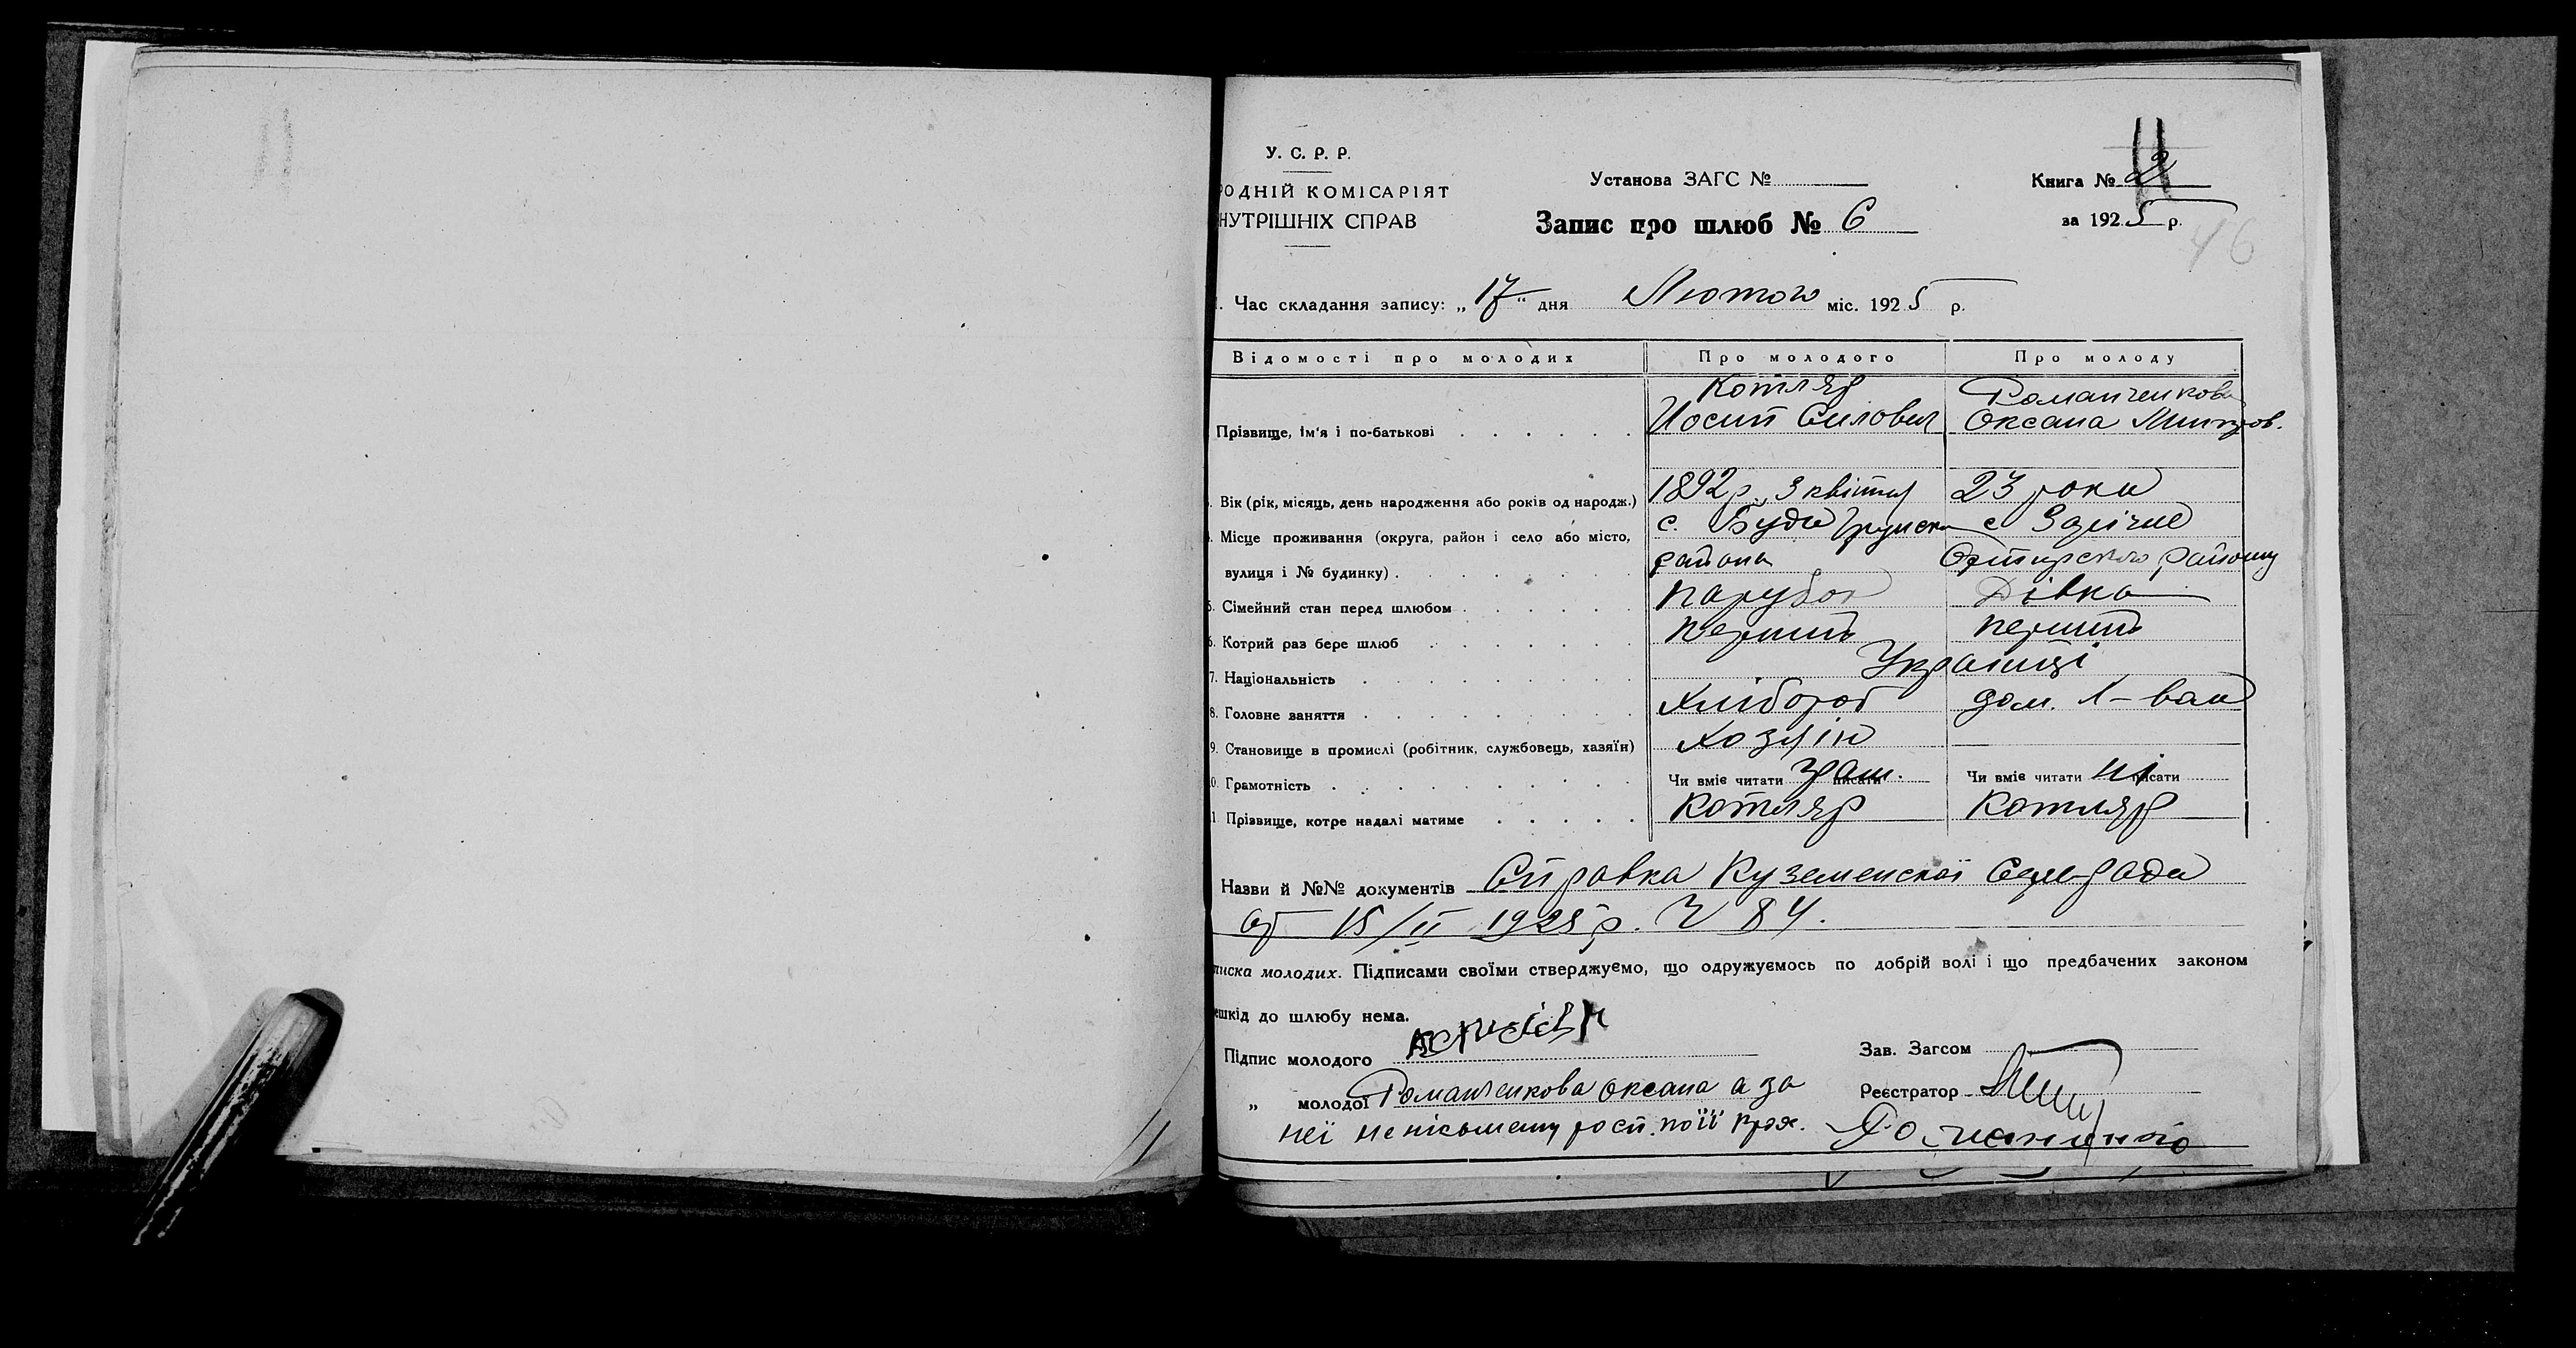 У. С. Р. Р.
ОДНІЙ КОМІСАРІЯТ
НУТРІШНІХ СПРАВ
Установа ЗАГС №
Книга № 2
Запис про шлюб № 6
за 1925 р.
46
Час складання запису: „17“ дня Лютого міс. 1925 р.
Відомості про молодих
Про молодого
Про молоду
Прізвище, ім'я і по-батькові
Котляр
Йосип Силович
Романченкова
Оксана Митров.
Вік (рік, місяць, день народження або років од народж.)
1892 р. 3 квітня
23 роки
Місце проживання (округа, район і село або місто,
вулиця і № будинку)
с. Буди Грунск
района
с Заріччє
району
5. Сімейний стан перед шлюбом
парубок
Дівка
6. Котрий раз бере шлюб
перший
перший
7. Національність
Українці
8. Головне заняття
Хлібороб
дом. х-вам
9. Становище в промислі (робітник, службовець, хазяїн)
Хозяін
0. Грамотність
Чи вміє читати грам. писати
Чи вміє читати ні писати
1 Прізвище, котре надалі матиме
Котляр
Котляр
Назви й №№ документів Справка Куземенскої Сельради
од 15/II 1925 р. Ч 84.
писка молодих. Підписами своїми стверджуємо, що одружуємось по добрій волі і що предбачених законом
ешкід до шлюбу нема.
Підпис молодого
Зав. Загсом
„ молодої Романченкова Оксана а за
неї неписьмену росп. по її прох.
Реєстратор
Романенко